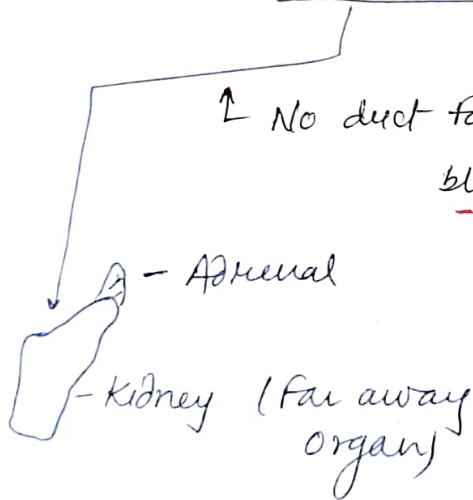 No duct fo
bl
- Adrenal
- Kidney (Far away
organ)